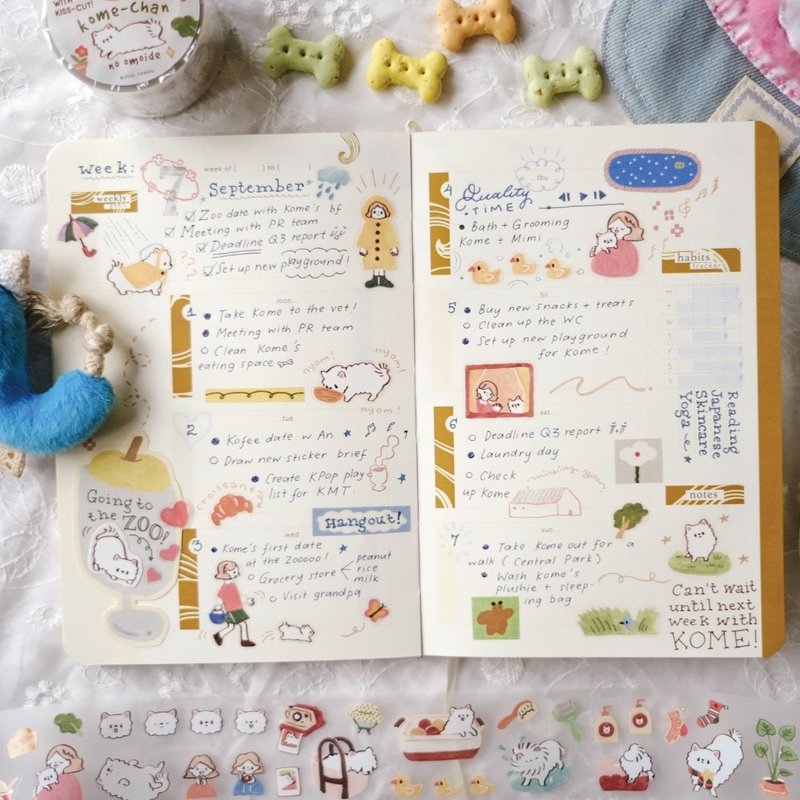 WITH
KISS-CUT!
Kome-Chan
no omoide
Week:
7
week of ( ) to ( )
September
weekly
Zoo date with Kome's bf
Meeting with PR team
Deadline Q3 report
Set up new playground!
mon
1
Take Kome to the vet!
Meeting with PR team
Clean Kome's
eating space
nyom!
nyom!
nyom!
tue
2
Kofee date w An
Draw new sticker brief
Create KPop play
list for KMT.
croissant
Going to
the ZOO!
Hangout!
wed
3
Kome's first date
at the Zooooo!
Grocery store
peanut
rice
milk
Visit grandpa
thu
4
Quality
TIME
Bath + Grooming
Kome + Mimi
fri
5
Buy new snacks + treats
Clean up the WC
Set up new playground
for Kome!
sat
6
Deadline Q3 report
Laundry day
Check
up Kome
missing you
sun
7
Take Kome out for a
walk (Central Park)
Wash Kome's
plushie + sleep-
ing bag
habits
tracker
M
T
W
T
F
S
S
Reading
Japanese
Skincare
Yoga
notes
Can't wait
until next
week with
KOME!